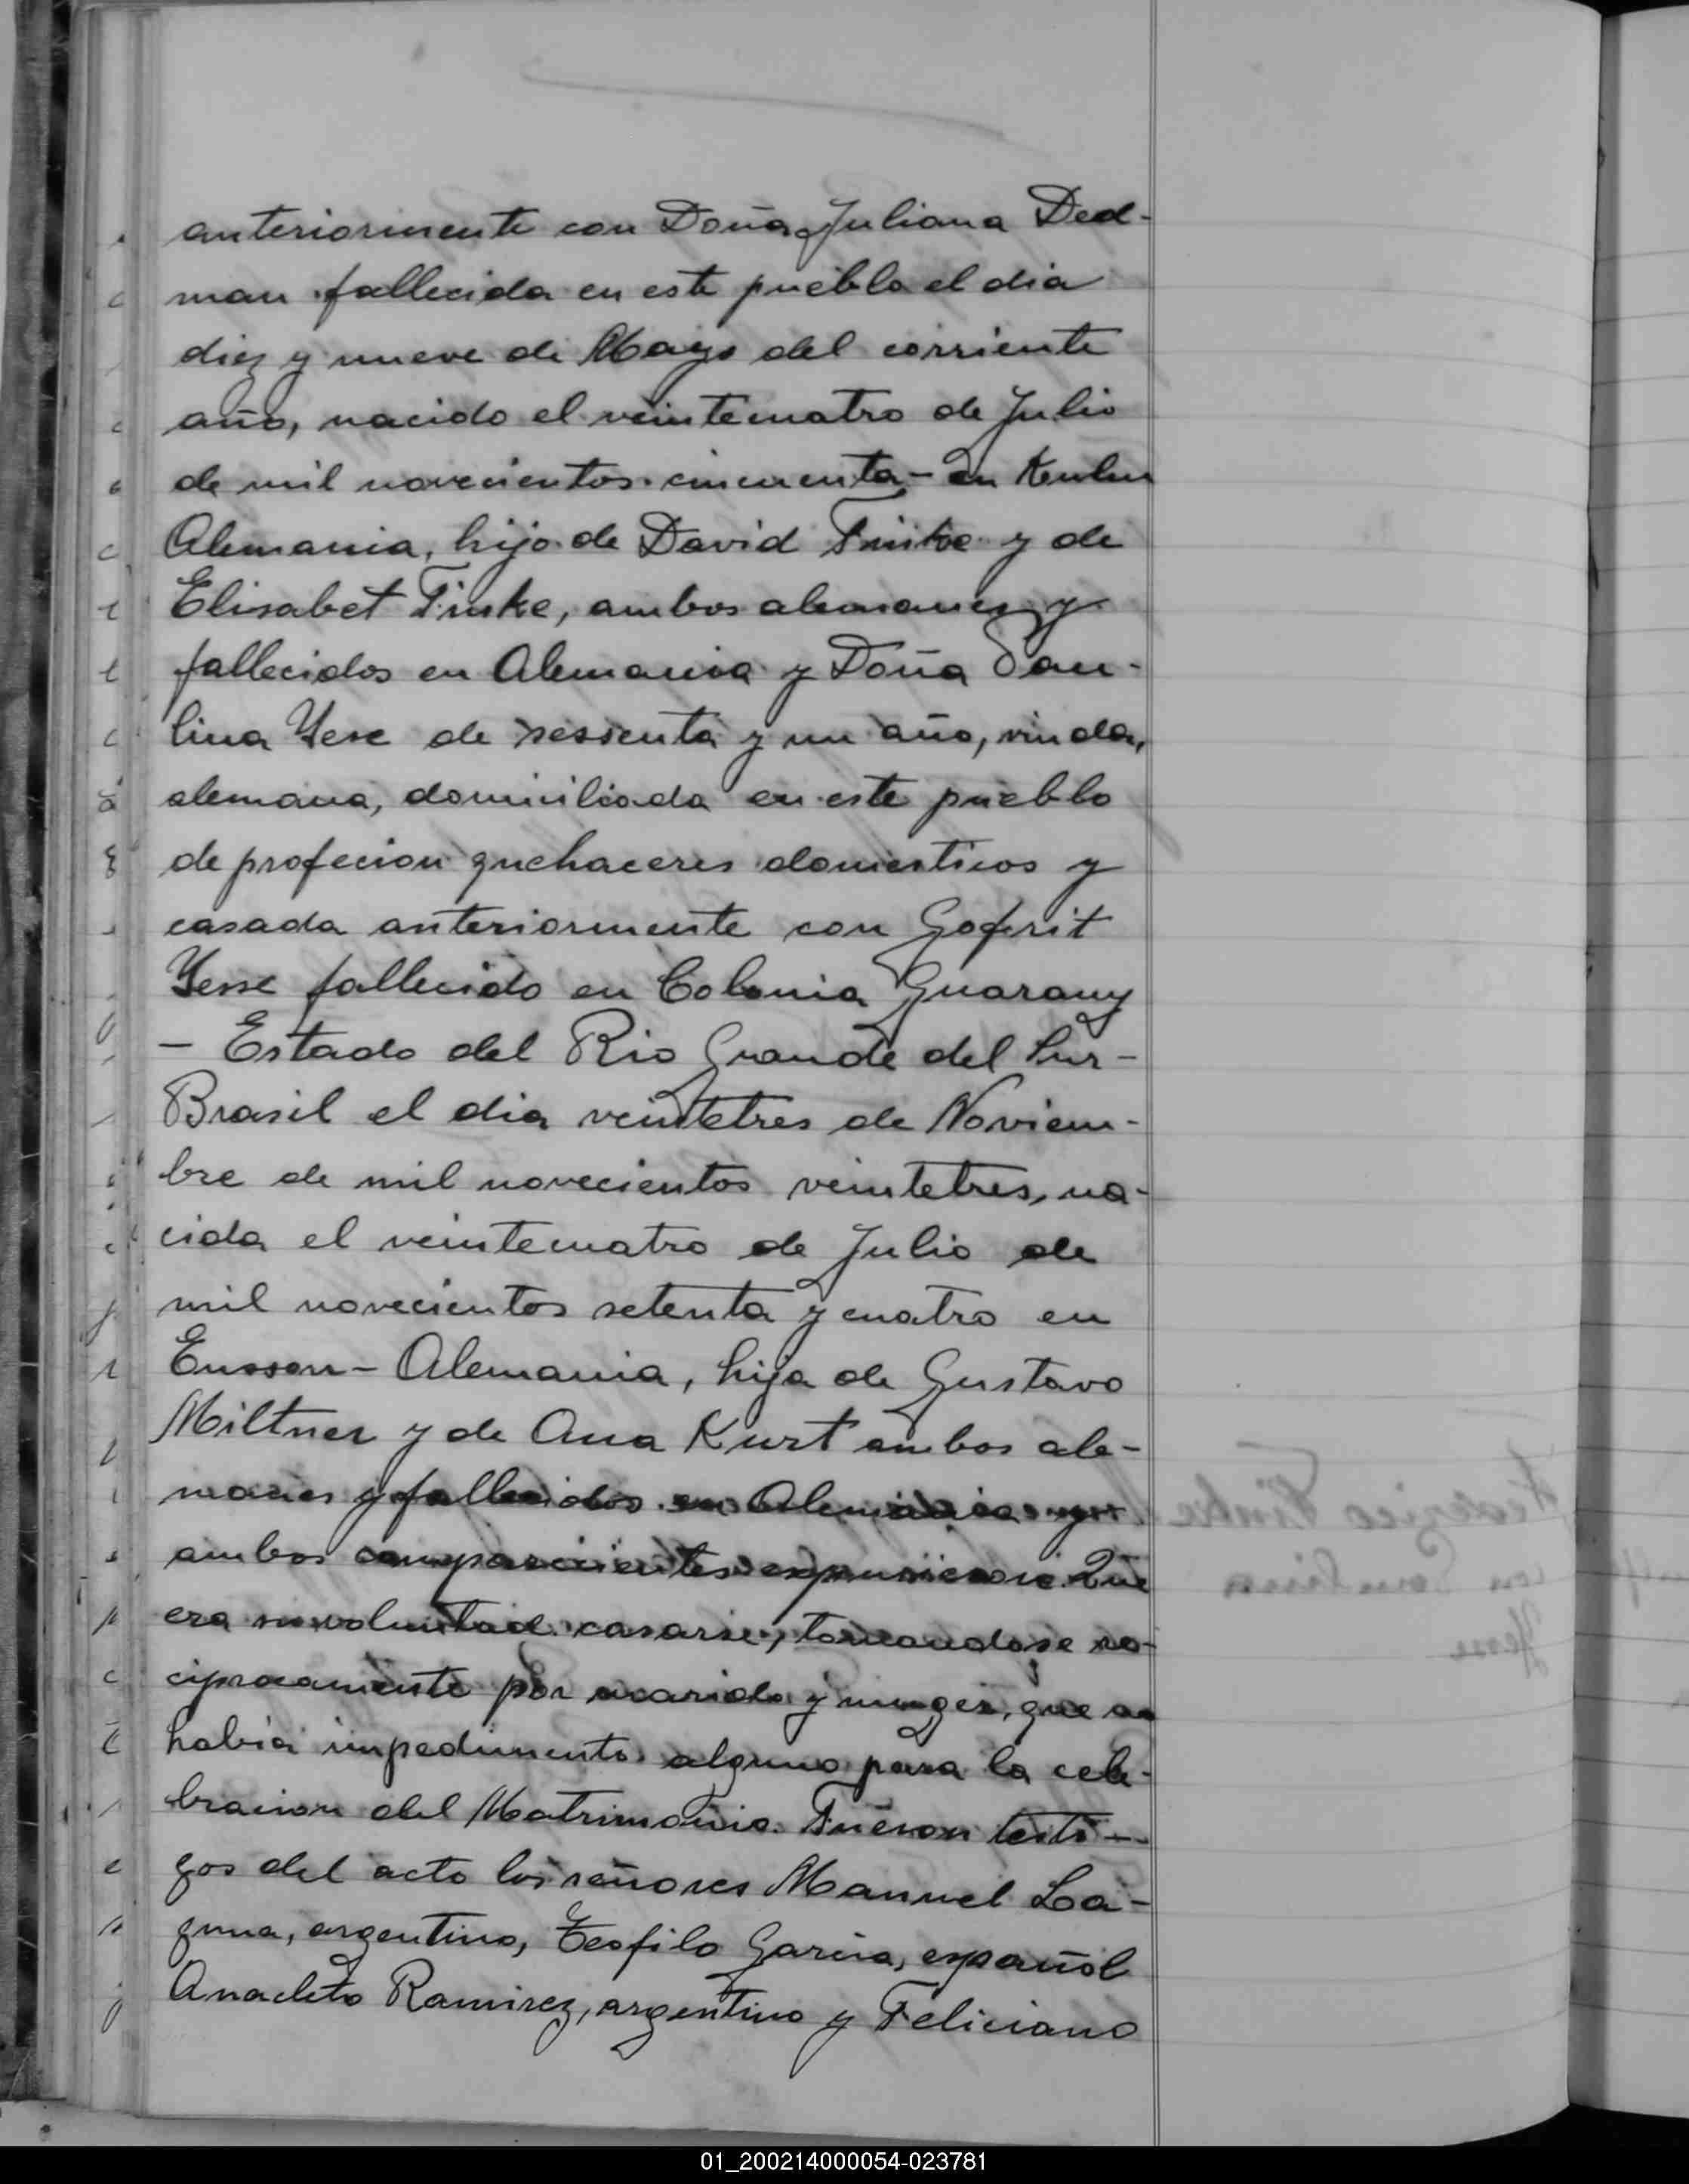 anteriormente con Doña Juliana Ded-
man fallecida en este pueblo el dia
diez y nueve de Mayo del corriente
año, nacido el veintecuatro de Julio
de mil novecientos cincuenta - en
Alemania, hijo de David Finke y de
Elisabet Finke, ambos alemanes y
fallecidos en Alemania y Doña Pau-
lina Yese de sesenta y un año, viuda,
alemana, domiciliada en este pueblo
de profecion quehaceres domesticos y
casada anteriormente con Goferit
Yesse fallecido en Colonia Guarany
- Estado del Rio Grande del Sur -
Brasil el dia veintetres de Noviem-
bre de mil novecientos veintetres, na-
cida el veintecuatro de Julio de
mil novecientos setenta y cuatro en
Alemania, hija de Gustavo
Miltner y de Ana Kurt ambos ale-
manes y fallecidos en Alemania y
ambos comparecientes expusieron: Que
era su voluntad casarse, tomandose re-
ciprocamente por marido y muger, que no
habia impedimento alguno para la cele-
bracion del Matrimonio. Fueron testi-
gos del acto los señores Manuel La-
guna, argentino, Teofilo Garcia, español
Anacleto Ramirez, argentino y Feliciano
01_200214000054-023781